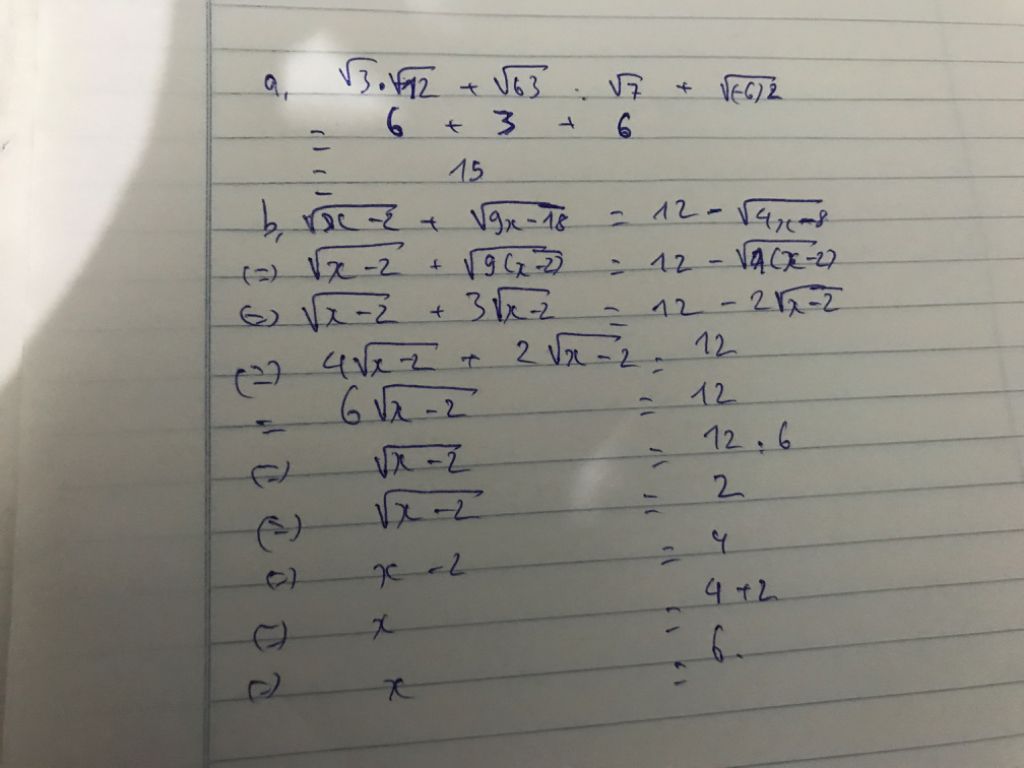 a, √3.√12 + √63 : √7 + √(-6)2
= 6 + 3 + 6
= 15
b, √x-2 + √9x-18 = 12 - √4x-8
(=) √x-2 + √9(x-2) = 12 - √4(x-2)
(=) √x-2 + 3√x-2 = 12 - 2√x-2
(=) 4√x-2 + 2√x-2 = 12
= 6√x-2 = 12
(=) √x-2 = 12 : 6
(=) √x-2 = 2
(=) x -2 = 4
(=) x = 4+2
(=) x = 6.